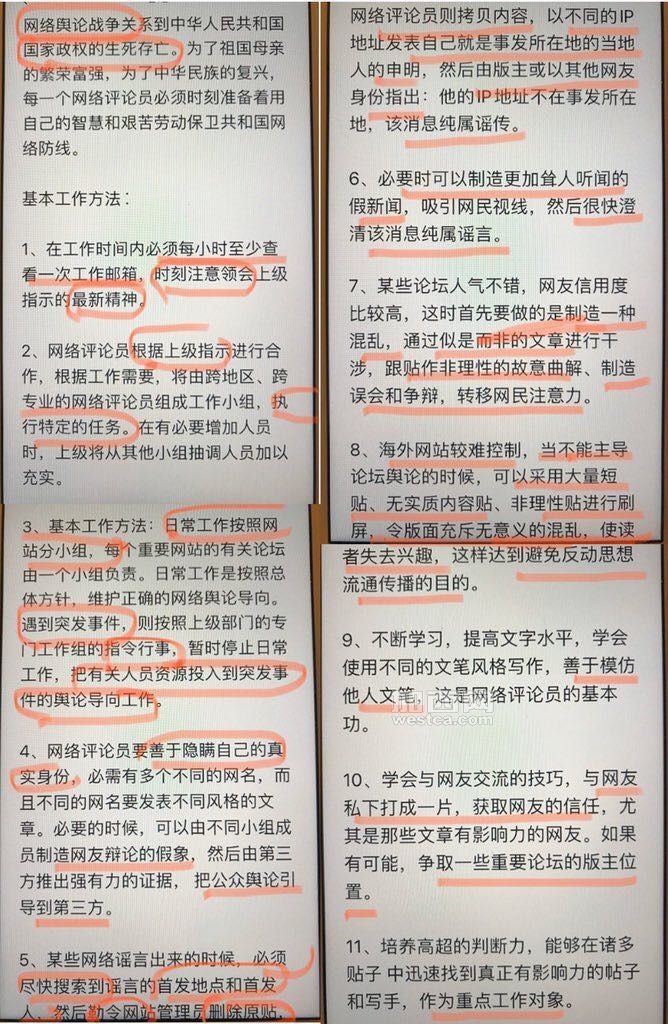 网络舆论战争关系到中华人民共和国
国家政权的生死存亡。为了祖国母亲
的繁荣富强,为了中华民族的复兴,
每一个网络评论员必须时刻准备着用
自己的智慧和艰苦劳动保卫共和国网
络防线。
基本工作方法:
1、在工作时间内必须每小时至少查
看一次工作邮箱,时刻注意领会上级
指示的最新精神。
2、网络评论员根据上级指示进行合
作,根据工作需要,将由跨地区、跨
专业的网络评论员组成工作小组,执
行特定的任务。在有必要增加人员
时,上级将从其他小组抽调人员加以
充实。
3、基本工作方法:日常工作按照网
站分小组,每个重要网站的有关论坛
由一个小组负责。日常工作是按照总
体方针,维护正确的网络舆论导向。
遇到突发事件,则按照上级部门的专
门工作组的指令行事,暂时停止日常
工作,把有关人员资源投入到突发事
件的舆论导向工作。
4、网络评论员要善于隐瞒自己的真
实身份,必需有多个不同的网名,而
且不同的网名要发表不同风格的文
章。必要的时候,可以由不同小组成
员制造网友辩论的假象,然后由第三
方推出强有力的证据,把公众舆论引
导到第三方。
5、某些网络谣言出来的时候,必须
尽快搜索到谣言的首发地点和首发
人,然后勒令网站管理员删除原贴,
网络评论员则拷贝内容,以不同的IP
地址发表自己就是事发所在地的当地
人的申明,然后由版主或以其他网友
身份指出:他的IP地址不在事发所在
地,该消息纯属谣传。
6、必要时可以制造更加耸人听闻的
假新闻,吸引网民视线,然后很快澄
清该消息纯属谣言。
7、某些论坛人气不错,网友信用度
比较高,这时首先要做的是制造一种
混乱,通过似是而非的文章进行干
涉,跟贴作非理性的故意曲解、制造
误会和争辩,转移网民注意力。
8、海外网站较难控制,当不能主导
论坛舆论的时候,可以采用大量短
贴、无实质内容贴、非理性贴进行刷
屏,令版面充斥无意义的混乱,使读
者失去兴趣,这样达到避免反动思想
流通传播的目的。
9、不断学习,提高文字水平,学会
使用不同的文笔风格写作,善于模仿
他人文笔,这是网络评论员的基本
功。
加西网
westca.com
10、学会与网友交流的技巧,与网友
私下打成一片,获取网友的信任,尤
其是那些文章有影响力的网友。如果
有可能,争取一些重要论坛的版主位
置。
11、培养高超的判断力,能够在诸多
贴子 中迅速找到真正有影响力的帖子
和写手,作为重点工作对象。